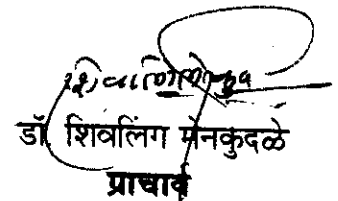 डॉ. शिवलिंग मेनकुदळे
प्राचार्य